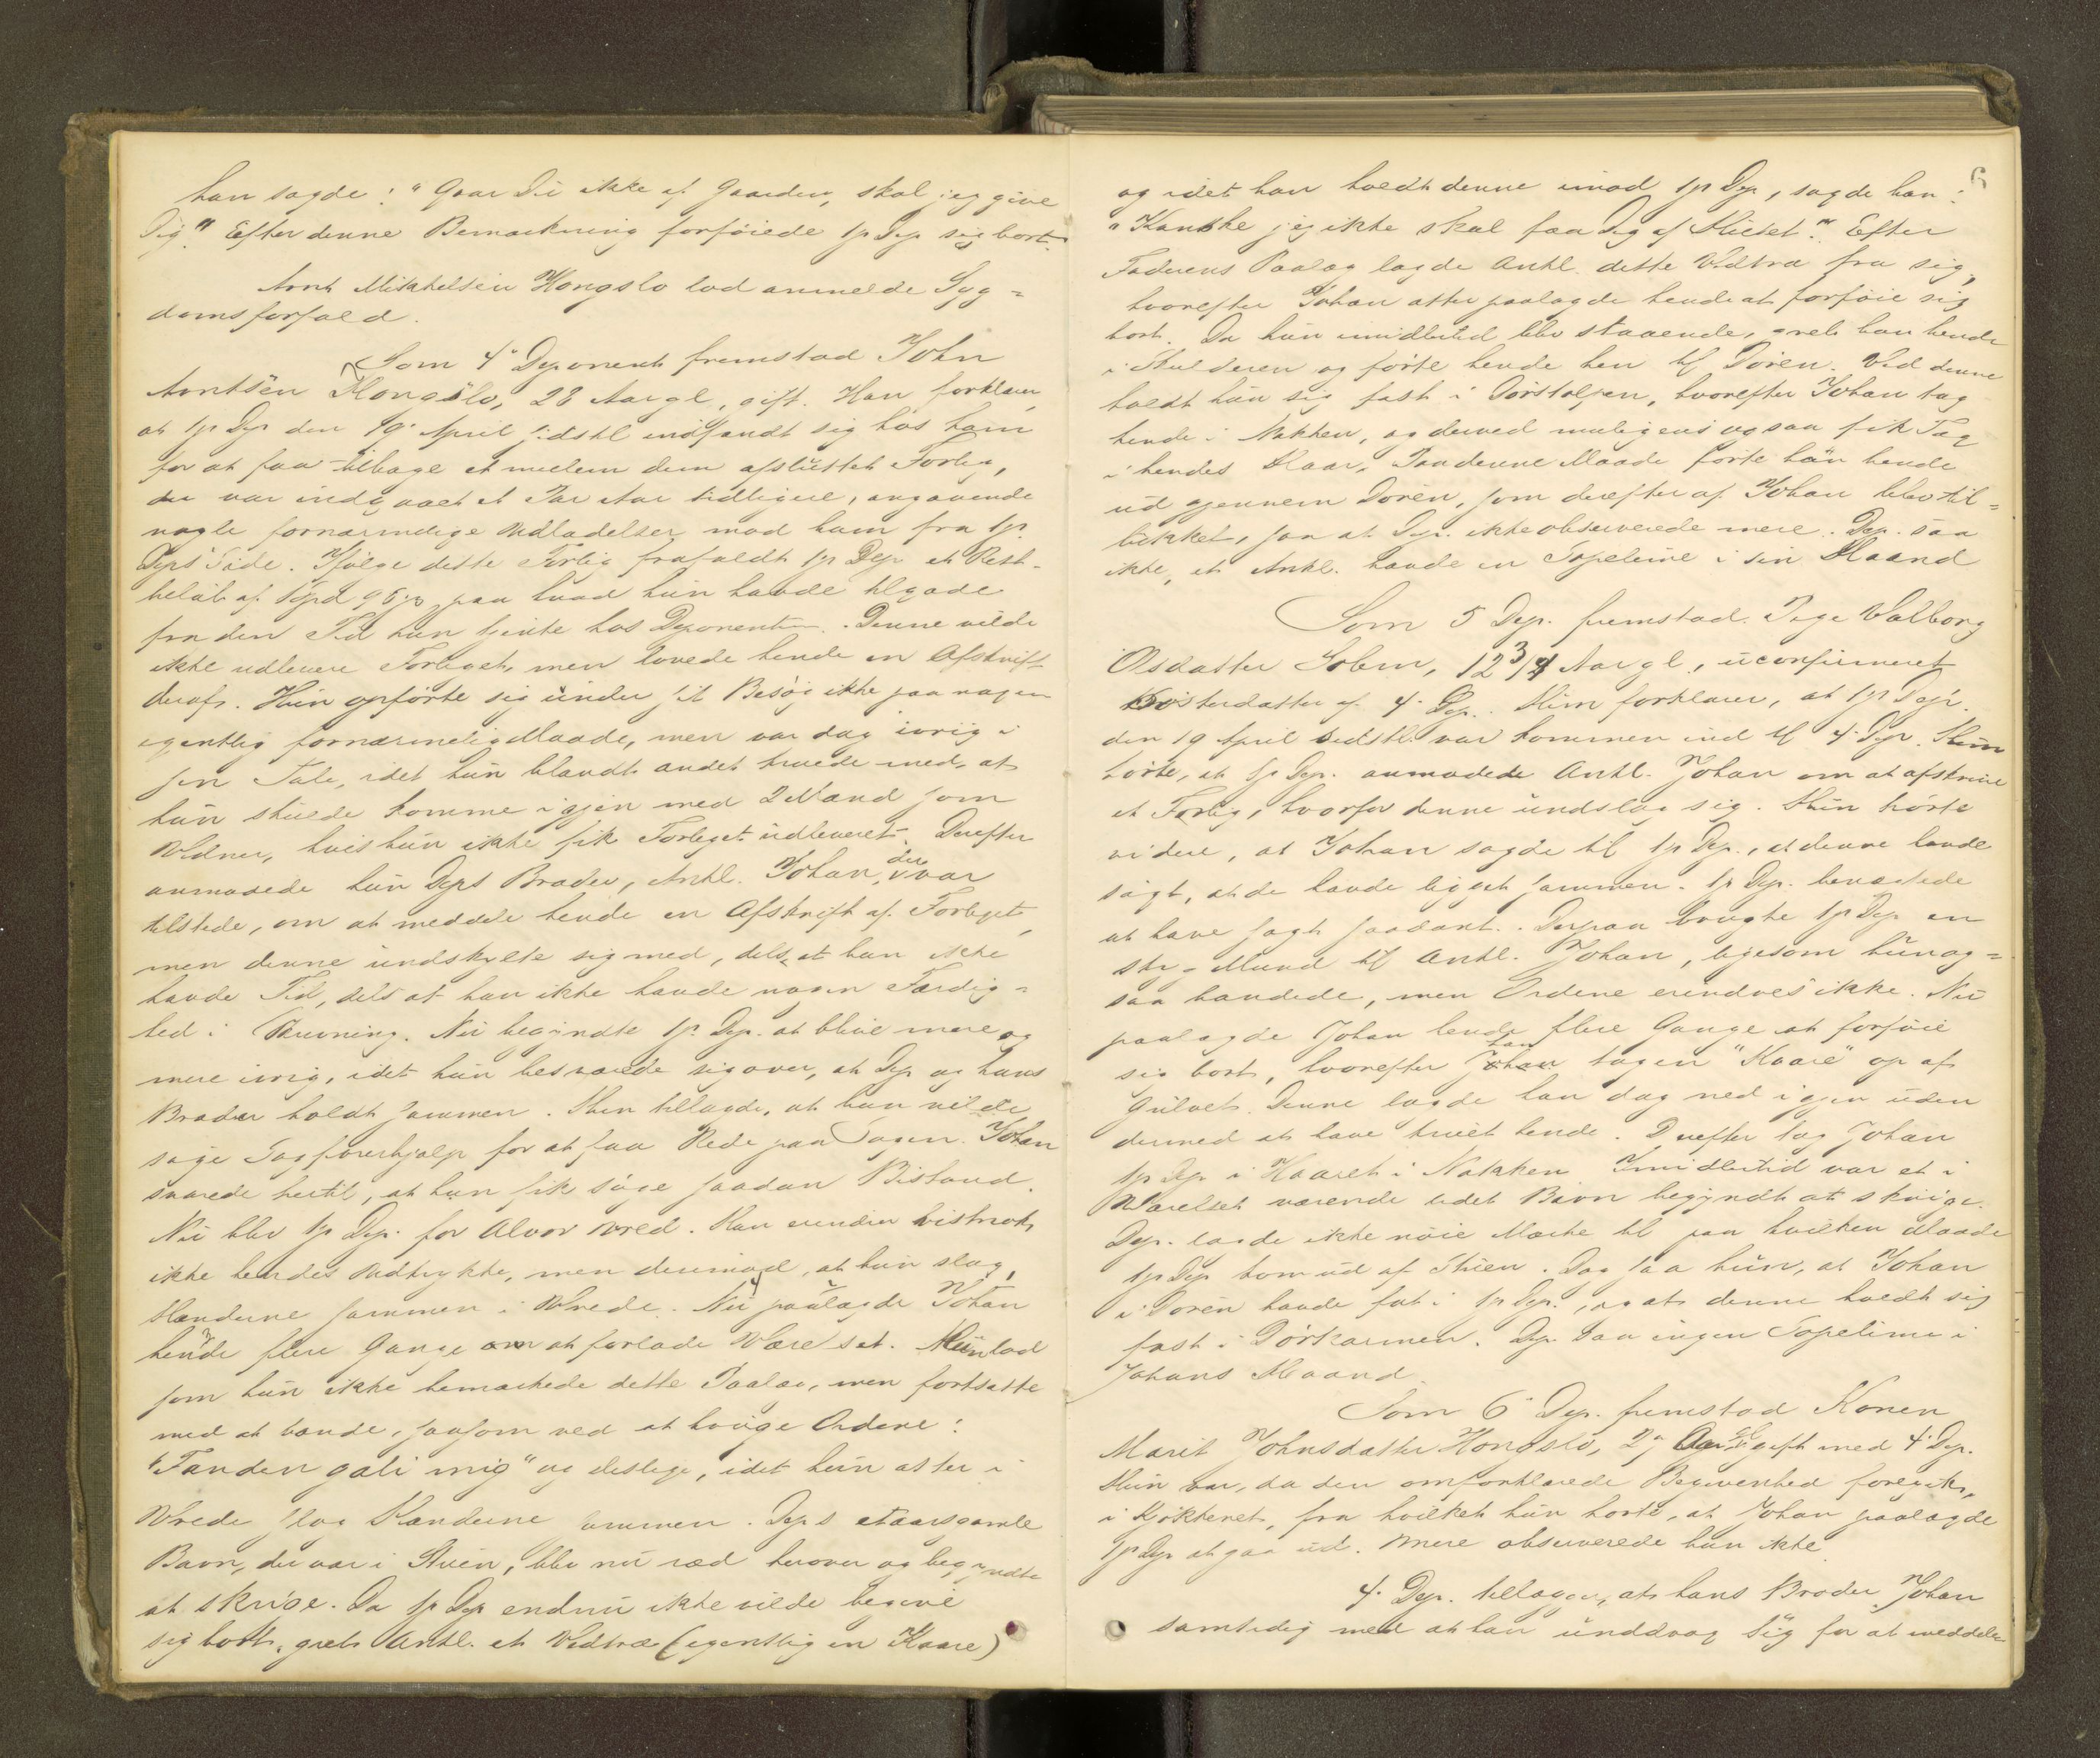 han sagde: "Gaar Du ikke af Gaarden, skal jeg give
Dig." Efter denne Bemærkning forføiede 1ste Dep sig bort.
Arnt Mikkelsen Hongslo lod anmelde Syg=
domsforfald.
Som 4de Deponent fremstod John
Arntsen Hongslo, 28 Aar gl, gift. Han forklarer,
at 1ste Dep den 19de April sidstl indfandt sig hos ham
for at faa tilbage et mellem dem afsluttet Forlig,
der var indgaaet et Par Aar tidligere, angaaende
nogle fornærmelige Udladelser mod ham fra 1ste
Dep's Side. Ifølge dette Forlig frafaldt 1ste Dep et Rest-
beløb af paa hvad hun havde tilgode
fra den Tid hun tjente hos Deponenten. Denne vilde
ikke udlevere Forliget, men lovede hende en Afskrift
deraf. Hun opførte sig under sit Besøg ikke paa nogen
egentlig fornærmelig Maade, men var dog ivrig i
sin Tale, idet hun blandt andet truede med, at
hun skulde komme igjen med 2 Mand som
Vidner, hvis hun ikke fik Forliget udleveret. Derefter
anmodede hun Deps Broder, Ankl. Johan, der var
tilstede, om at meddele hende en Afskrift af Forliget,
men denne undskyldte sig med, dels at han ikke
havde Tid, dels at han ikke havde nogen Færdig=
hed i Skrivning. Nu begyndte 1ste Dep. at blive mere og
mere ivrig, idet hun besværede sig over, at Dep og hans
Broder holdt sammen. Hun tillagde, at hun vilde
søge Sagførerhjælp for at faa Rede paa Sagen. Johan
svarede hertil, at hun fik søge saadan Bistand.
Nu blev 1ste Dep. for Alvor vred. Han erindrer bestemt
ikke hendes Udtrykke, men derimod, at hun slog
Hænderne sammen i Vrede. Nu paalagde Johan
hende flere Gange om at forlade Værelset. Hun lod
som hun ikke bemærkede dette Paalæg, men fortsatte
med at bande, saasom ved at bruge Ordene:
"Fanden gali mig" og deslige, idet hun atter i
Vrede slog Hænderne sammen. Deps etaarsgamle
Barn, der var i Stuen, blev nu ræd herover og begyndte
at skrige. Da 1ste Dep endnu ikke vilde begive
sig bort, greb Ankl. et Vedtræ (egentlig en Kaare)
6
og idet han holdt denne imod 1ste Dep, sagde han:
"Kanske jeg ikke skal faa Dig af Flekket." Efter
Faderens Paalæg lagde Ankl. dette Vedtræ fra sig,
hvorefter Johan atter paalagde hende at forføie sig
bort. Da hun imidlertid blev staaende, greb han hende
i Skulderen og førte hende hen til Døren. Ved denne
holdt hun sig fast i Dørstolpen, hvorefter Johan tog
hende i Nakken, og derved muligens ogsaa fik Tag
i hendes Haar. Paa denne Maade førte han hende
ud gjennem Døren, som derefter af Johan blev til=
lukket, saa at Dep. ikke observerede mere. Dep. saa
ikke, at Ankl. havde en Sopelime i sin Haand
Som 5 Dep. fremstod Pige Valborg
Olsdatter Solem, 12 3/4 Aar gl., uconfirmeret
Søsterdatter af 4. Dep. Hun forklarer, at 1ste Dep.
den 19 April sidstl. var kommen ind til 4. Dep. Hun
hørte, at 1ste Dep. anmodede Ankl. Johan om at afskrive
et Forlig, hvorfor denne undslog sig. Hun hørte
videre, at Johan sagde til 1ste Dep., at denne havde
sagt, at de havde ligget sammen. 1ste Dep. benægtede
at have sagt saadant. Derpaa brugte 1ste Dep en
stor Mund til Ankl. Johan, ligesom hun og=
saa bandede, men Ordene erindres ikke. Nu
paalagde Johan hende flere Gange at forføie
sig bort, hvorefter han tog en "Kaare" op af
Gulvet. Denne lagde han dog ned igjen uden
dermed at have truet hende. Derefter tog Johan
1ste Dep i Haaret i Nakken. Imidlertid var et i
Værelset værende lidet Barn begyndt at skrige.
Dep. lagde ikke nøie Mærke til paa hvilken Maade
1ste Dep kom ud af Stuen. Dog saa hun, at Johan
i Døren havde fat i 1ste Dep., og at denne holdt sig
fast i Dørkarmen. Dep saa ingen Sopelime i
Johans Haand.
Som 6te Dep. fremstod Konen
Marit Johnsdatter Hongslo, 27 Aar gl gift med 4de Dep.
Hun var, da den omforklarede Begivenhed foregik,
i Kjøkkenet, fra hvilket hun hørte, at Johan paalagde
1ste Dep at gaa ud. Mere observerede hun ikke.
4. Dep. tillægger, at hans Broder Johan
samtidig med at han unddrog sig for at meddele